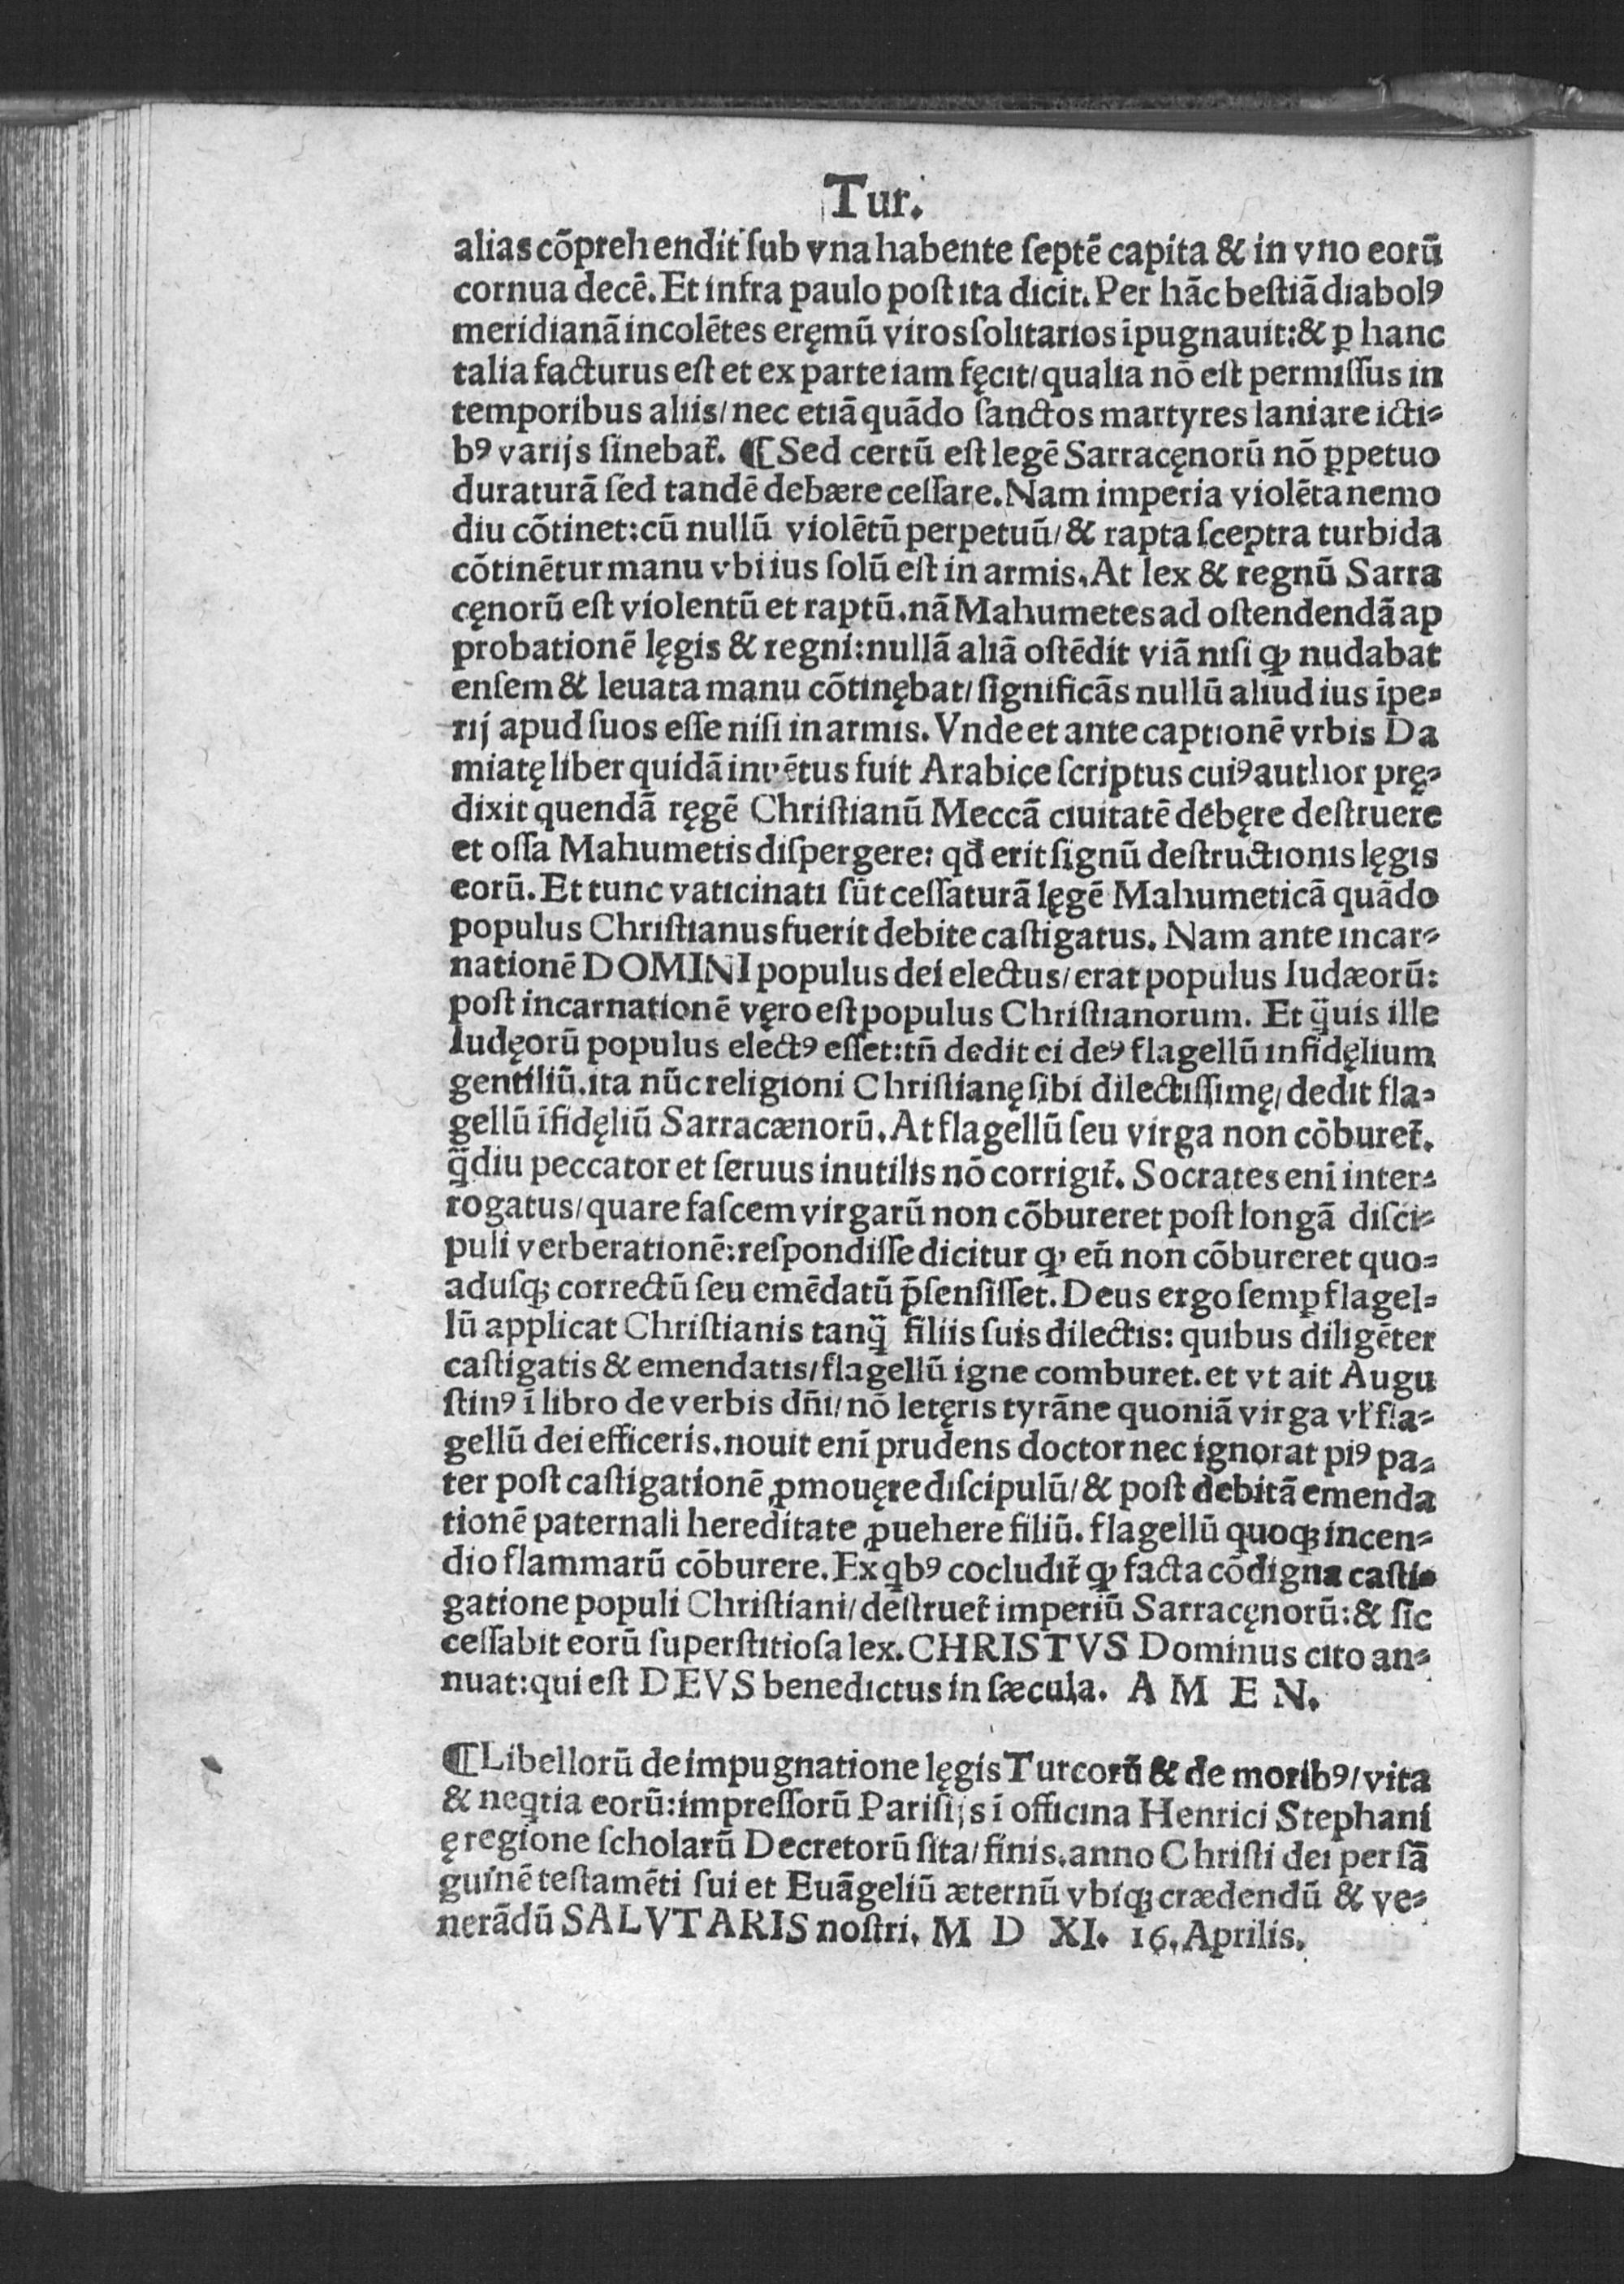 Tur.
alias cõprehendit ſub vna habente ſeptẽ capita & in vno eorũ
cornua decẽ. Et infra paulo poſt ita dicit. Per hãc beſtiã diabolꝰ
meridianã incolẽtes eręmũ viros ſolitarios ĩpugnauit: & ꝑ hanc
talia facturus eſt et ex parte iam fęcit/ qualia nõ eſt permiſſus in
temporibus aliis/ nec etiã quãdo ſanctos martyres laniare icti⸗
bꝰ varijs ſinebat᷑. ¶ Sed certũ eſt legẽ Sarracęnorũ nõ ꝑpetuo
duraturã ſed tandẽ debære ceſſare. Nam imperia violẽta nemo
diu cõtinet: cũ nullũ violẽtũ perpetuũ/ & rapta ſceptra turbida
cõtinẽtur manu vbi ius ſolũ eſt in armis. At lex & regnũ Sarra
cęnorũ eſt violentũ et raptũ. nã Mahumetes ad oſtendendã ap
probationẽ lęgis & regni: nullã aliã oſtẽdit viã niſi ꝙ nudabat
enſem & leuata manu cõtinębat/ ſignificãs nullũ aliud ius ĩpe⸗
rij apud ſuos eſſe niſi in armis. Vnde et ante captionẽ vrbis Da
miatę liber quidã invẽtus fuit Arabice ſcriptus cuiꝰ author prę⸗
dixit quendã ręgẽ Chriſtianũ Meccã ciuitatẽ debęre deſtruere
et oſſa Mahumetis diſpergere: qđ erit ſignũ deſtructionis lęgis
eorũ. Et tunc vaticinati ſũt ceſſaturã lęgẽ Mahumeticã quãdo
populus Chriſtianus fuerit debite caſtigatus. Nam ante incar⸗
nationẽ DOMINI populus dei electus/ erat populus Iudæorũ:
poſt incarnationẽ vęro eſt populus Chriſtianorum. Et q̃uis ille
Iudęorũ populus electꝰ eſſet: tñ dedit ei deꝰ flagellũ infidęlium
gentiliũ. ita nũc religioni Chriſtianę ſibi dilectiſſimę/ dedit fla⸗
gellũ ĩfidęliũ Sarracænorũ. At flagellũ ſeu virga non cõburet᷑.
q̃diu peccator et ſeruus inutilis nõ corrigit᷑. Socrates enĩ inter⸗
rogatus/ quare faſcem virgarũ non cõbureret poſt longã diſci⸗
puli verberationẽ: reſpondiſſe dicitur ꝙ eũ non cõbureret quo⸗
aduſqꝫ correctũ ſeu emẽdatũ p̃ſenſiſſet. Deus ergo ſemꝑ flagel⸗
lũ applicat Chriſtianis tanq̃ filiis ſuis dilectis: quibus diligẽter
caſtigatis & emendatis/ flagellũ igne comburet. et vt ait Augu
ſtinꝰ ĩ libro de verbis dñi/ nõ letęris tyrãne quoniã virga vl᷑ fla⸗
gellũ dei efficeris. nouit enĩ prudens doctor nec ignorat piꝰ pa⸗
ter poſt caſtigationẽ ꝓmouęre diſcipulũ/ & poſt debitã emenda
tionẽ paternali hereditate ꝓuehere filiũ. flagellũ quoqꝫ incen⸗
dio flammarũ cõburere. Ex qbꝰ cocludit᷑ ꝙ facta cõdigna caſti⸗
gatione populi Chriſtiani/ deſtruet᷑ imperiũ Sarracęnorũ: & ſic
ceſſabit eorũ ſuperſtitioſa lex. CHRISTVS Dominus cito an⸗
nuat: qui eſt DEVS benedictus in ſæcula. A M E N.
¶ Libellorũ de impugnatione lęgis Turcorũ & de moribꝰ/ vita
& neq̇tia eorũ: impreſſorũ Pariſijs ĩ officina Henrici Stephani
ę regione ſcholarũ Decretorũ ſita/ finis. anno Chriſti dei per ſã
guinẽ teſtamẽti ſui et Euãgeliũ æternũ vbiqꝫ crædendũ & ve⸗
nerãdũ SALVTARIS noſtri. M D XI. 16. Aprilis.